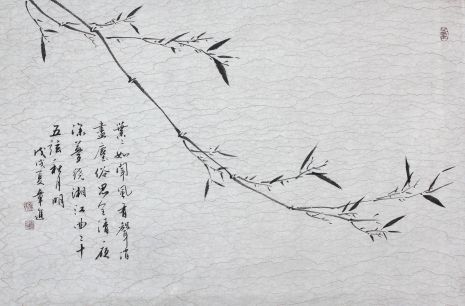 葉々如聞風有聲消
盡塵俗思全清夜
深夢繞湘江曲二十
五弦秋月明
戊戌夏